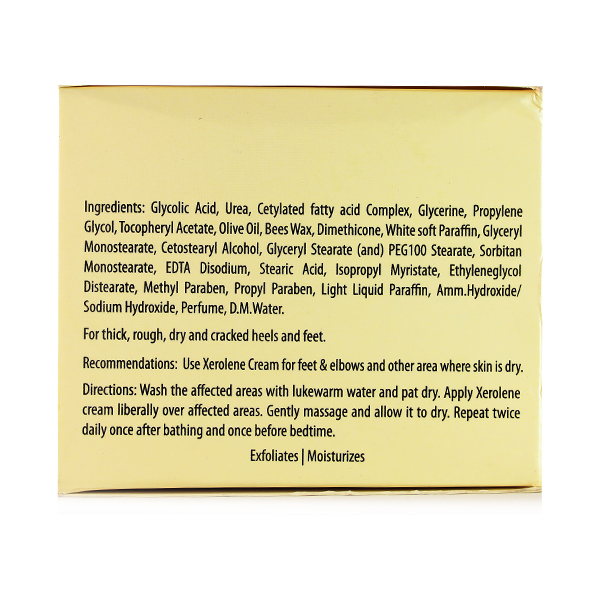 Ingredients: Glycolic Acid, Urea, Cetylated fatty acid Complex, Glycerine, Propylene
Glycol, Tocopheryl Acetate, Olive Oil, Bees Wax, Dimethicone, White soft Paraffin, Glyceryl
Monostearate, Cetostearyl Alcohol, Glyceryl Stearate (and) PEG100 Stearate, Sorbitan
Monostearate, EDTA Disodium, Stearic Acid, Isopropyl Myristate, Ethyleneglycol
Distearate, Methyl Paraben, Propyl Paraben, Light Liquid Paraffin, Amm.Hydroxide/
Sodium Hydroxide, Perfume, D.M.Water.
For thick, rough, dry and cracked heels and feet.
Recommendations: Use Xerolene Cream for feet & elbows and other area where skin is dry.
Directions: Wash the affected areas with lukewarm water and pat dry. Apply Xerolene
cream liberally over affected areas. Gently massage and allow it to dry. Repeat twice
daily once after bathing and once before bedtime.
Exfoliates | Moisturizes